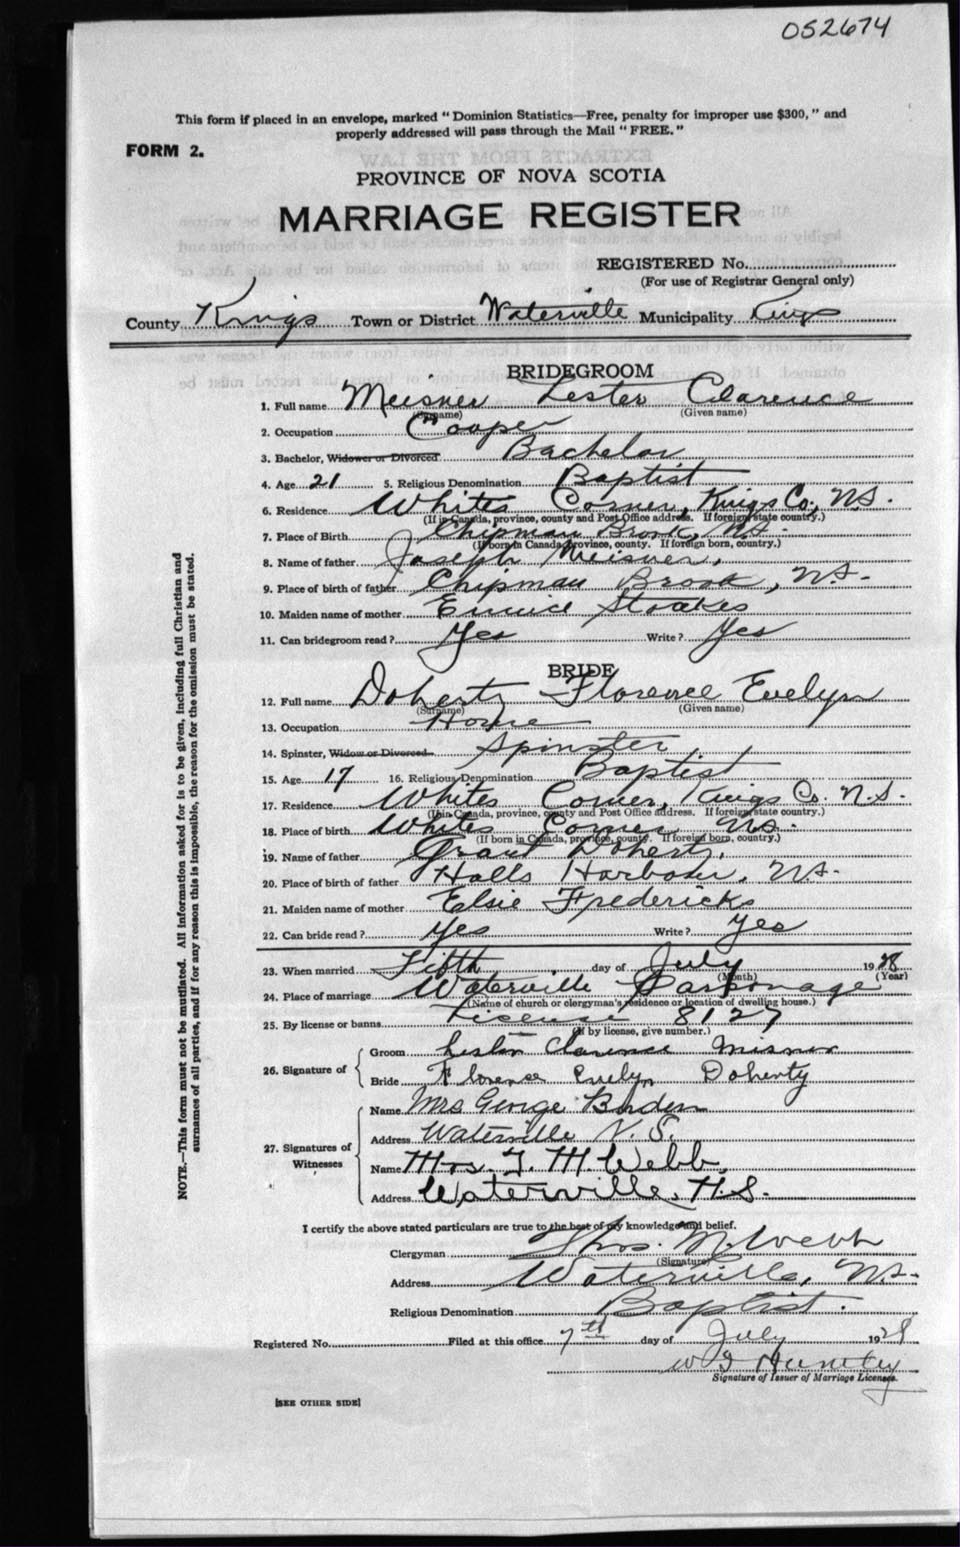 052674
This form if placed in an envelope, marked "Dominion Statistics—Free, penalty for improper use $300," and
properly addressed will pass through the Mail "FREE."
FORM 2.
PROVINCE OF NOVA SCOTIA
MARRIAGE REGISTER
REGISTERED No.
(For use of Registrar General only)
County Kings Town or District Waterville Municipality Kings
BRIDEGROOM
1. Full name Meisner Lester Clarence
(Surname) (Given name)
2. Occupation Cooper
3. Bachelor, Widower or Divorced Bachelor
4. Age 21 5. Religious Denomination Baptist
6. Residence Whites Corner, Kings Co., N.S.
(If in Canada, province, county and Post Office address. If foreign state country.)
7. Place of Birth Chipman Brook, N.S.
(If born in Canada, province, county. If foreign born, country.)
8. Name of father Joseph Meisner,
9. Place of birth of father Chipman Brook, N.S.
10. Maiden name of mother Eunice Stoakes
11. Can bridegroom read? Yes Write? Yes
BRIDE
12. Full name Doherty Florence Evelyn
(Surname) (Given name)
13. Occupation Home
14. Spinster, Widow or Divorced Spinster
15. Age 17 16. Religious Denomination Baptist
17. Residence Whites Corner, Kings Co. N.S.
(If in Canada, province, county and Post Office address. If foreign state country.)
18. Place of birth Whites Corner N.S.
(If born in Canada, province, county. If foreign born, country.)
19. Name of father Grant Doherty,
20. Place of birth of father Halls Harbour, N.S.
21. Maiden name of mother Elsie Fredericks
22. Can bride read? Yes Write? Yes
23. When married Fifth day of July 1928
(Month) (Year)
24. Place of marriage Waterville Parsonage
(Name of church or clergyman's residence or location of dwelling house.)
25. By license or banns License 8127
(If by license, give number.)
26. Signature of
Groom Lester Clarence Misner
Bride Florence Evelyn Doherty
27. Signatures of Witnesses
Name Mrs George Borden
Address Waterville N.S.
Name Mrs. T. M. Webb
Address Waterville, N.S.
I certify the above stated particulars are true to the best of my knowledge and belief.
Clergyman Thos. M. Webb
(Signature)
Address Waterville, N.S.
Religious Denomination Baptist.
Registered No. Filed at this office 7th day of July 1928
Huntley
Signature of Issuer of Marriage Licenses.
[SEE OTHER SIDE]
NOTE.—This form must not be mutilated. All information asked for is to be given, including full Christian and
surnames of all parties, and if for any reason this is impossible, the reason for the omission must be stated.